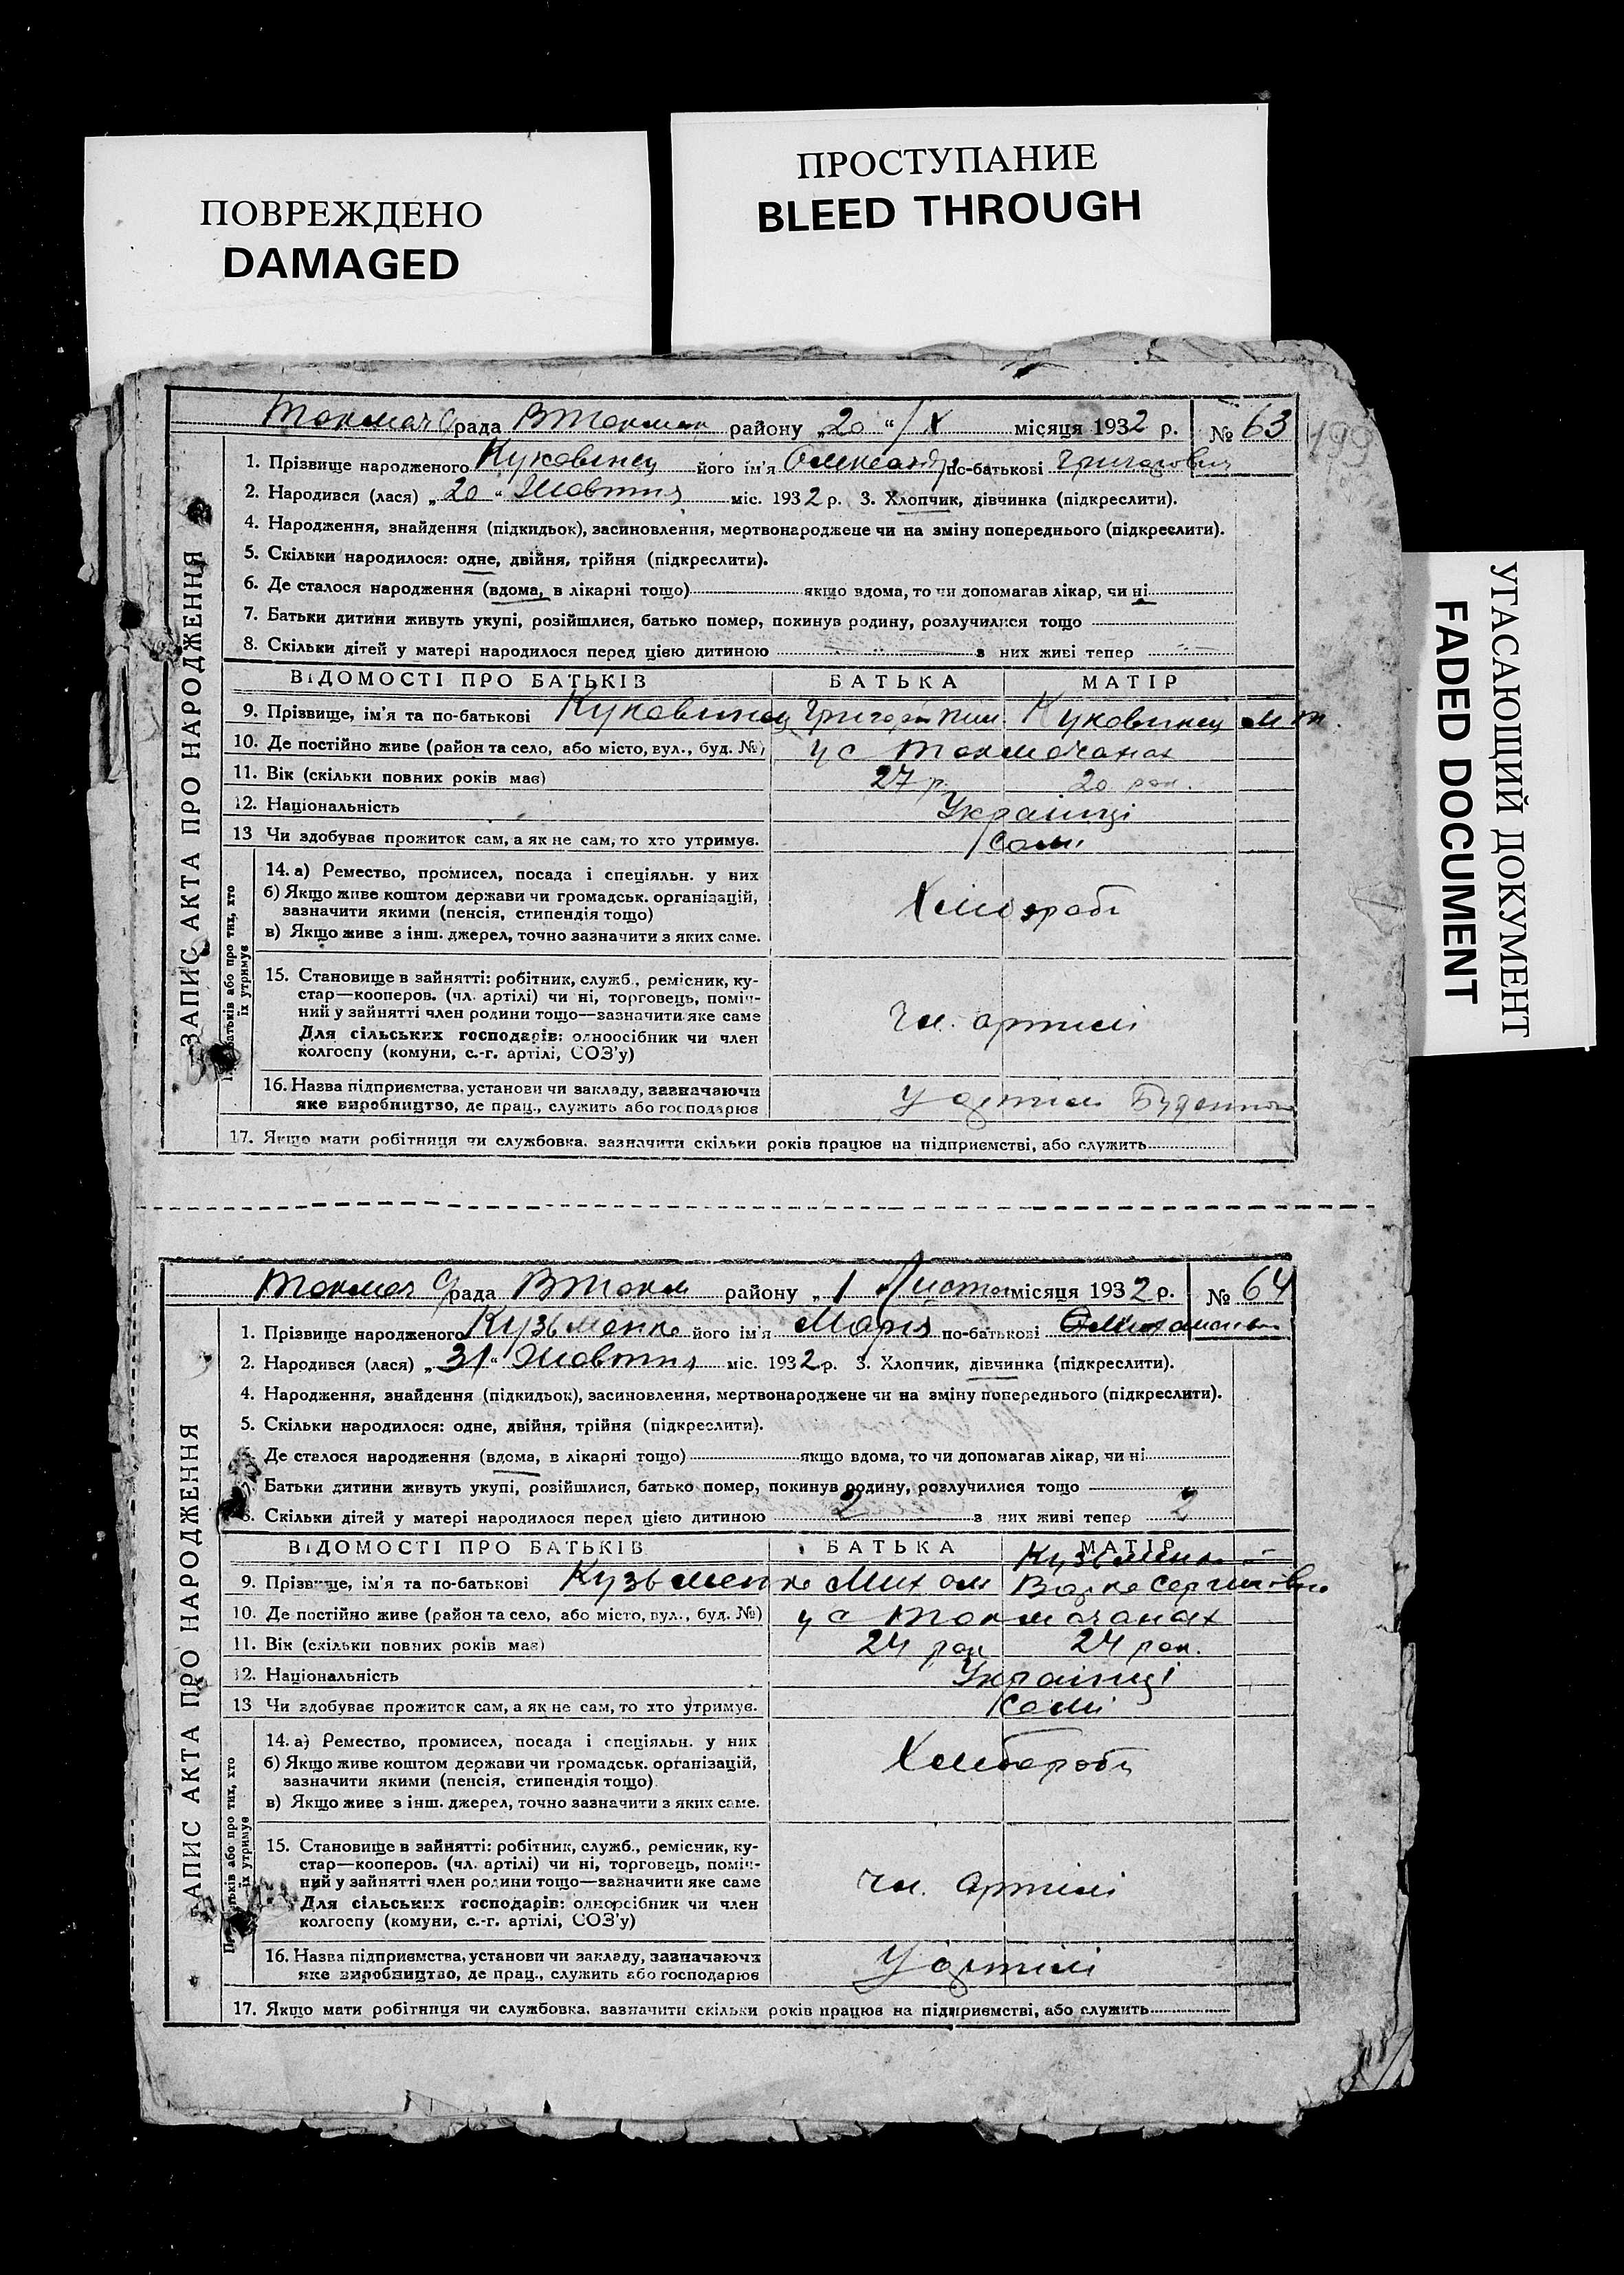 ПОВРЕЖДЕНО
DAMAGED
ПРОСТУПАНИЕ
BLEED THROUGH
УГАСАЮЩИЙ ДОКУМЕНТ
FADED DOCUMENT
199
Токмач С рада ВТокмак району „20“ /X місяця 1932 р. № 63
ЗАПИС АКТА ПРО НАРОДЖЕННЯ
1. Прізвище народженого Куковинец його ім'я Олександр по-батькові Григорович
2. Народився (лася) „20“ Жовтня міс. 1932 р. 3. Хлопчик, дівчинка (підкреслити).
4. Народження, знайдення (підкидьок), засиновлення, мертвонароджене чи на зміну попереднього (підкреслити).
5. Скільки народилося: одне, двійня, трійня (підкреслити).
6. Де сталося народження (вдома, в лікарні тощо) якщо вдома, то чи допомагав лікар, чи ні
7. Батьки дитини живуть укупі, розійшлися, батько помер, покинув родину, розлучилися тощо
8. Скільки дітей у матері народилося перед цією дитиною з них живі тепер
ВІДОМОСТІ ПРО БАТЬКІВ БАТЬКА МАТІР
9. Прізвище, ім'я та по-батькові Куковинец Григорій Куковинец
10. Де постійно живе (район та село, або місто, вул., буд. №) у с Токмачанах
11. Вік (скільки повних років має) 27 р 20 рок.
12. Національність Українці
13 Чи здобуває прожиток сам, а як не сам, то хто утримує. Самі
батьків або про тих, хто їх утримує
14. а) Ремество, промисел, посада і спеціяльн. у них
б) Якщо живе коштом держави чи громадськ. організацій,
зазначити якими (пенсія, стипендія тощо)
в) Якщо живе з інш. джерел, точно зазначити з яких саме.
Хлібороби
15. Становище в зайнятті: робітник, служб., ремісник, ку-
стар—кооперов. (чл. артілі) чи ні, торговець, поміч-
ний у зайнятті член родини тощо—зазначити яке саме
Для сільських господарів: одноосібник чи член
колгоспу (комуни, с.-г. артілі, СОЗ'у)
Чл. артілі
16. Назва підприємства, установи чи закладу, зазначаючи
яке виробництво, де прац., служить або господарює
У артілі
17. Якщо мати робітниця чи службовка, зазначити скільки років працює на підприємстві, або служить
Токмач С рада ВТокм району „1 Листоп місяця 1932 р. № 64
АПИС АКТА ПРО НАРОДЖЕННЯ
1. Прізвище народженого Кузьменко його ім'я Марія по-батькові
2. Народився (лася) „31“ Жовтня міс. 1932 р. 3. Хлопчик, дівчинка (підкреслити).
4. Народження, знайдення (підкидьок), засиновлення, мертвонароджене чи на зміну попереднього (підкреслити).
5. Скільки народилося: одне, двійня, трійня (підкреслити).
Де сталося народження (вдома, в лікарні тощо) якщо вдома, то чи допомагав лікар, чи ні
Батьки дитини живуть укупі, розійшлися, батько помер, покинув родину, розлучилися тощо
8. Скільки дітей у матері народилося перед цією дитиною 2 з них живі тепер 2
ВІДОМОСТІ ПРО БАТЬКІВ БАТЬКА МАТІР
Кузьменко
9. Прізвище, ім'я та по-батькові Кузьменко Мих
10. Де постійно живе (район та село, або місто, вул., буд. №) у с Токмачанах
11. Вік (скільки повних років має) 24 рок 24 рок.
12. Національність Українці
13 Чи здобуває прожиток сам, а як не сам, то хто утримує. Самі
тьків або про тих, хто їх утримує
14. а) Ремество, промисел, посада і спеціяльн. у них
б) Якщо живе коштом держави чи громадськ. організацій,
зазначити якими (пенсія, стипендія тощо)
в) Якщо живе з інш. джерел, точно зазначити з яких саме.
Хлібороби
15. Становище в зайнятті: робітник, служб., ремісник, ку-
стар—кооперов. (чл. артілі) чи ні, торговець, поміч-
ний у зайнятті член родини тощо—зазначити яке саме
Для сільських господарів: одноосібник чи член
колгоспу (комуни, с.-г. артілі, СОЗ'у)
Чл. артілі
16. Назва підприємства, установи чи закладу, зазначаючи
яке виробництво, де прац., служить або господарює
У артілі
17. Якщо мати робітниця чи службовка, зазначити скільки років працює на підприємстві, або служить